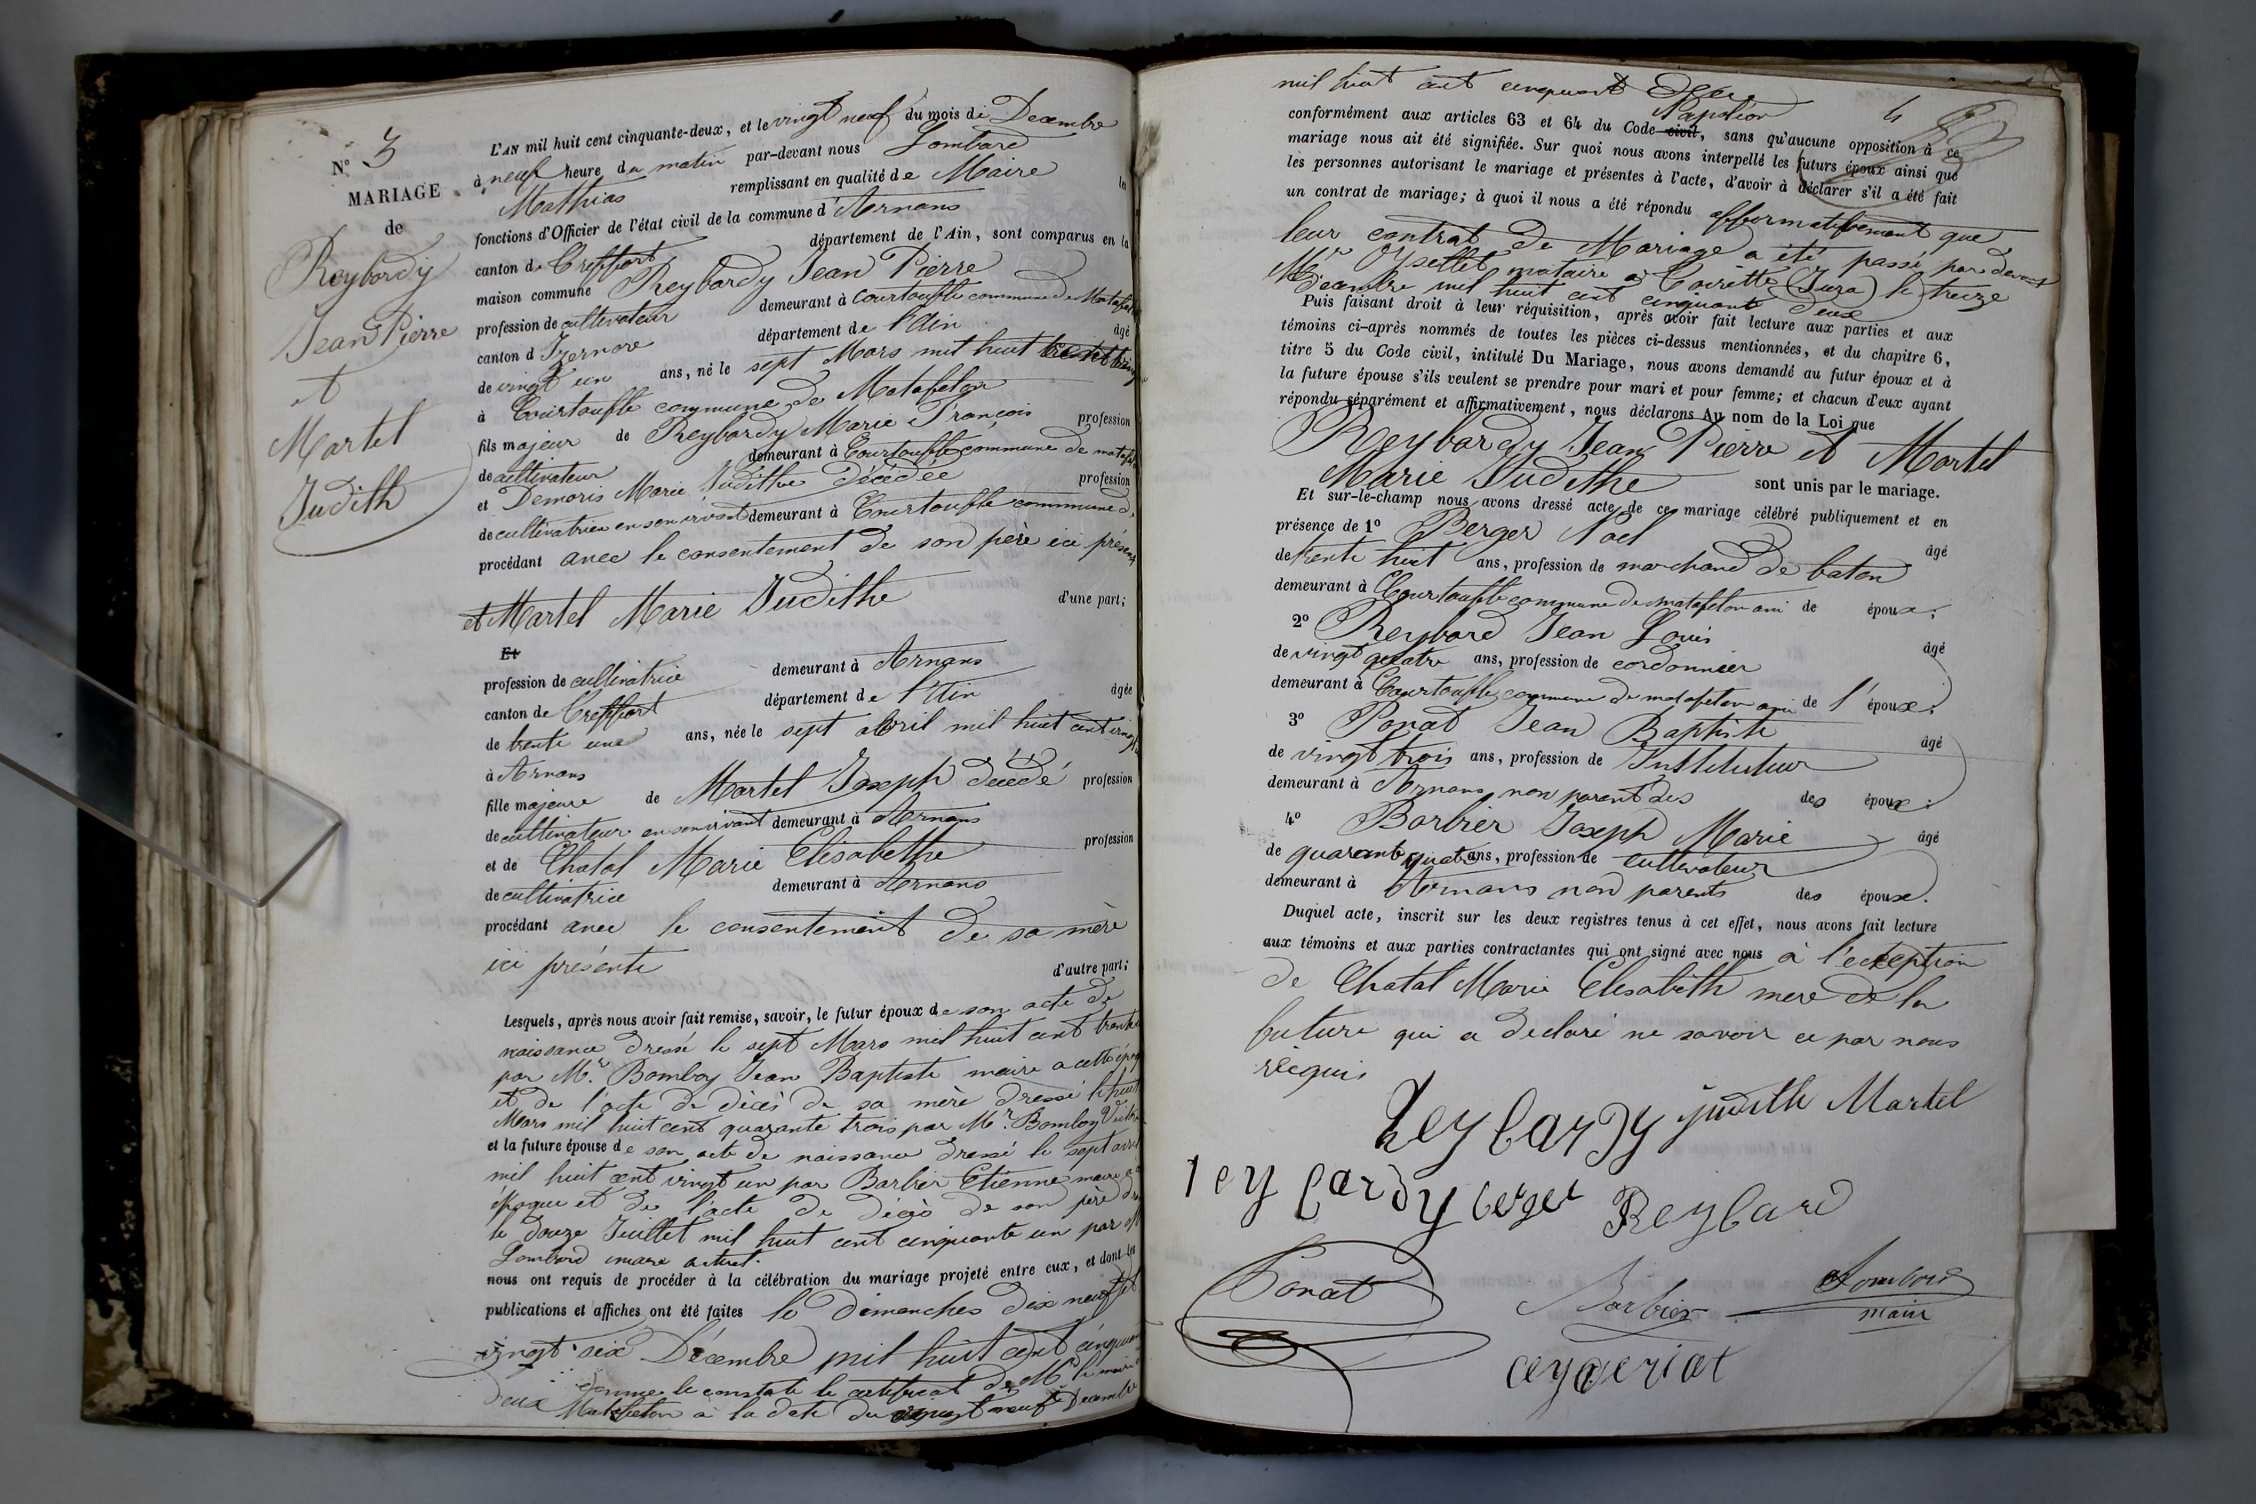 N° 3
MARIAGE
de
Reybardy
Jean Pierre
et
Martel
Judith
L'AN mil huit cent cinquante-deux, et le vingt neuf du mois de Decembre
à neuf heure du matin par-devant nous Lombard
Mathias remplissant en qualité de Maire les
fonctions d'Officier de l'état civil de la commune d'Arnans
canton de Creffort département de l'Ain, sont comparus en la
maison commune Reybardy Jean Pierre
profession de cultivateur demeurant à Courtouphle commune de Matafelon
canton d Izernore département de l'Ain âgé
de vingt un ans, né le sept Mars mil huit cent
à Courtouphle commune de Matafelon
fils majeur de Reybardy Marie François profession
de cultivateur demeurant à Courtouphle commune de matafelon
et Demaris Marie Judithe décédée profession
de cultivatrice en son vivant demeurant à Courtouphle commune d
procédant avec le consentement de son père ici présent
et Martel Marie Judithe d'une part;
Et
profession de cultivatrice demeurant à Arnans
canton de Creffort département de l'Ain âgée
de trente une ans, née le sept avril mil huit cent vingt
à Arnans
fille majeure de Martel Joseph décédé profession
de cultivateur en son vivant demeurant à Arnans
et de Chatal Marie Elisabethe profession
de cultivatrice demeurant à Arnans
procédant avec le consentement de sa mère
ici présente d'autre part;
Lesquels, après nous avoir fait remise, savoir, le futur époux de son acte de
naissance dressé le sept Mars mil huit cent trente
par Mr. Bomboy Jean Baptiste maire a cette époq
et de l'acte de décès de sa mère dressé le huit
Mars mil huit cent quarante trois par Mr. Bomboy
et la future épouse de son acte de naissance dressé le sept avril
mil huit cent vingt un par Barbier Etienne maire a
époque et de l'acte de décès de son père
le douze Juillet mil huit cent cinquante un par M
Lombard maire actuel.
nous ont requis de procéder à la célébration du mariage projeté entre eux, et dont les
publications et affiches ont été faites le dimanches dix neuf et
vingt six Décembre mil huit cent cinquante
deux comme le constate le certificat de Mr le maire
Matafelon à la date du vingt neuf Decembre
mil huit cent cinquante deux
4
conformément aux articles 63 et 64 du Code civil Napoléon, sans qu'aucune opposition à ce
mariage nous ait été signifiée. Sur quoi nous avons interpellé les futurs époux ainsi que
les personnes autorisant le mariage et présentes à l'acte, d'avoir à déclarer s'il a été fait
un contrat de mariage; à quoi il nous a été répondu affirmativement que
leur contrat de Mariage a été passé par devant
Mr notaire a (Jura) le treize
Décembre mil huit cent cinquante deux
Puis faisant droit à leur réquisition, après avoir fait lecture aux parties et aux
témoins ci-après nommés de toutes les pièces ci-dessus mentionnées, et du chapitre 6,
titre 5 du Code civil, intitulé Du Mariage, nous avons demandé au futur époux et à
la future épouse s'ils veulent se prendre pour mari et pour femme; et chacun d'eux ayant
répondu séparément et affirmativement, nous déclarons Au nom de la Loi que
Reybardy Jean Pierre et Martel
Marie Judithe sont unis par le mariage.
Et sur-le-champ nous avons dressé acte de ce mariage célébré publiquement et en
présence de 1° Berger Noel âgé
de trente huit ans, profession de marchand de baton
demeurant à Courtouphle commune de matafelon ami de époux;
2° Reybard Jean Louis âgé
de vingt quatre ans, profession de cordonnier
demeurant à Courtouphle commune de matafelon ami de l' époux;
3° Ponat Jean Baptiste âgé
de vingt trois ans, profession de Instituteur
demeurant à Arnans non parent des des époux;
4° Barbier Joseph Marie âgé
de quarante quatre ans, profession de cultivateur
demeurant à Arnans non parents des époux.
Duquel acte, inscrit sur les deux registres tenus à cet effet, nous avons fait lecture
aux témoins et aux parties contractantes qui ont signé avec nous à l'exception
de Chatal Marie Elisabeth mere de la
future qui a declaré ne savoir ce par nous
réequis
Reybardy Judith Martel
reybardy berger Reybard
Ponat Barbier Lombard
maire
ceyzeriat